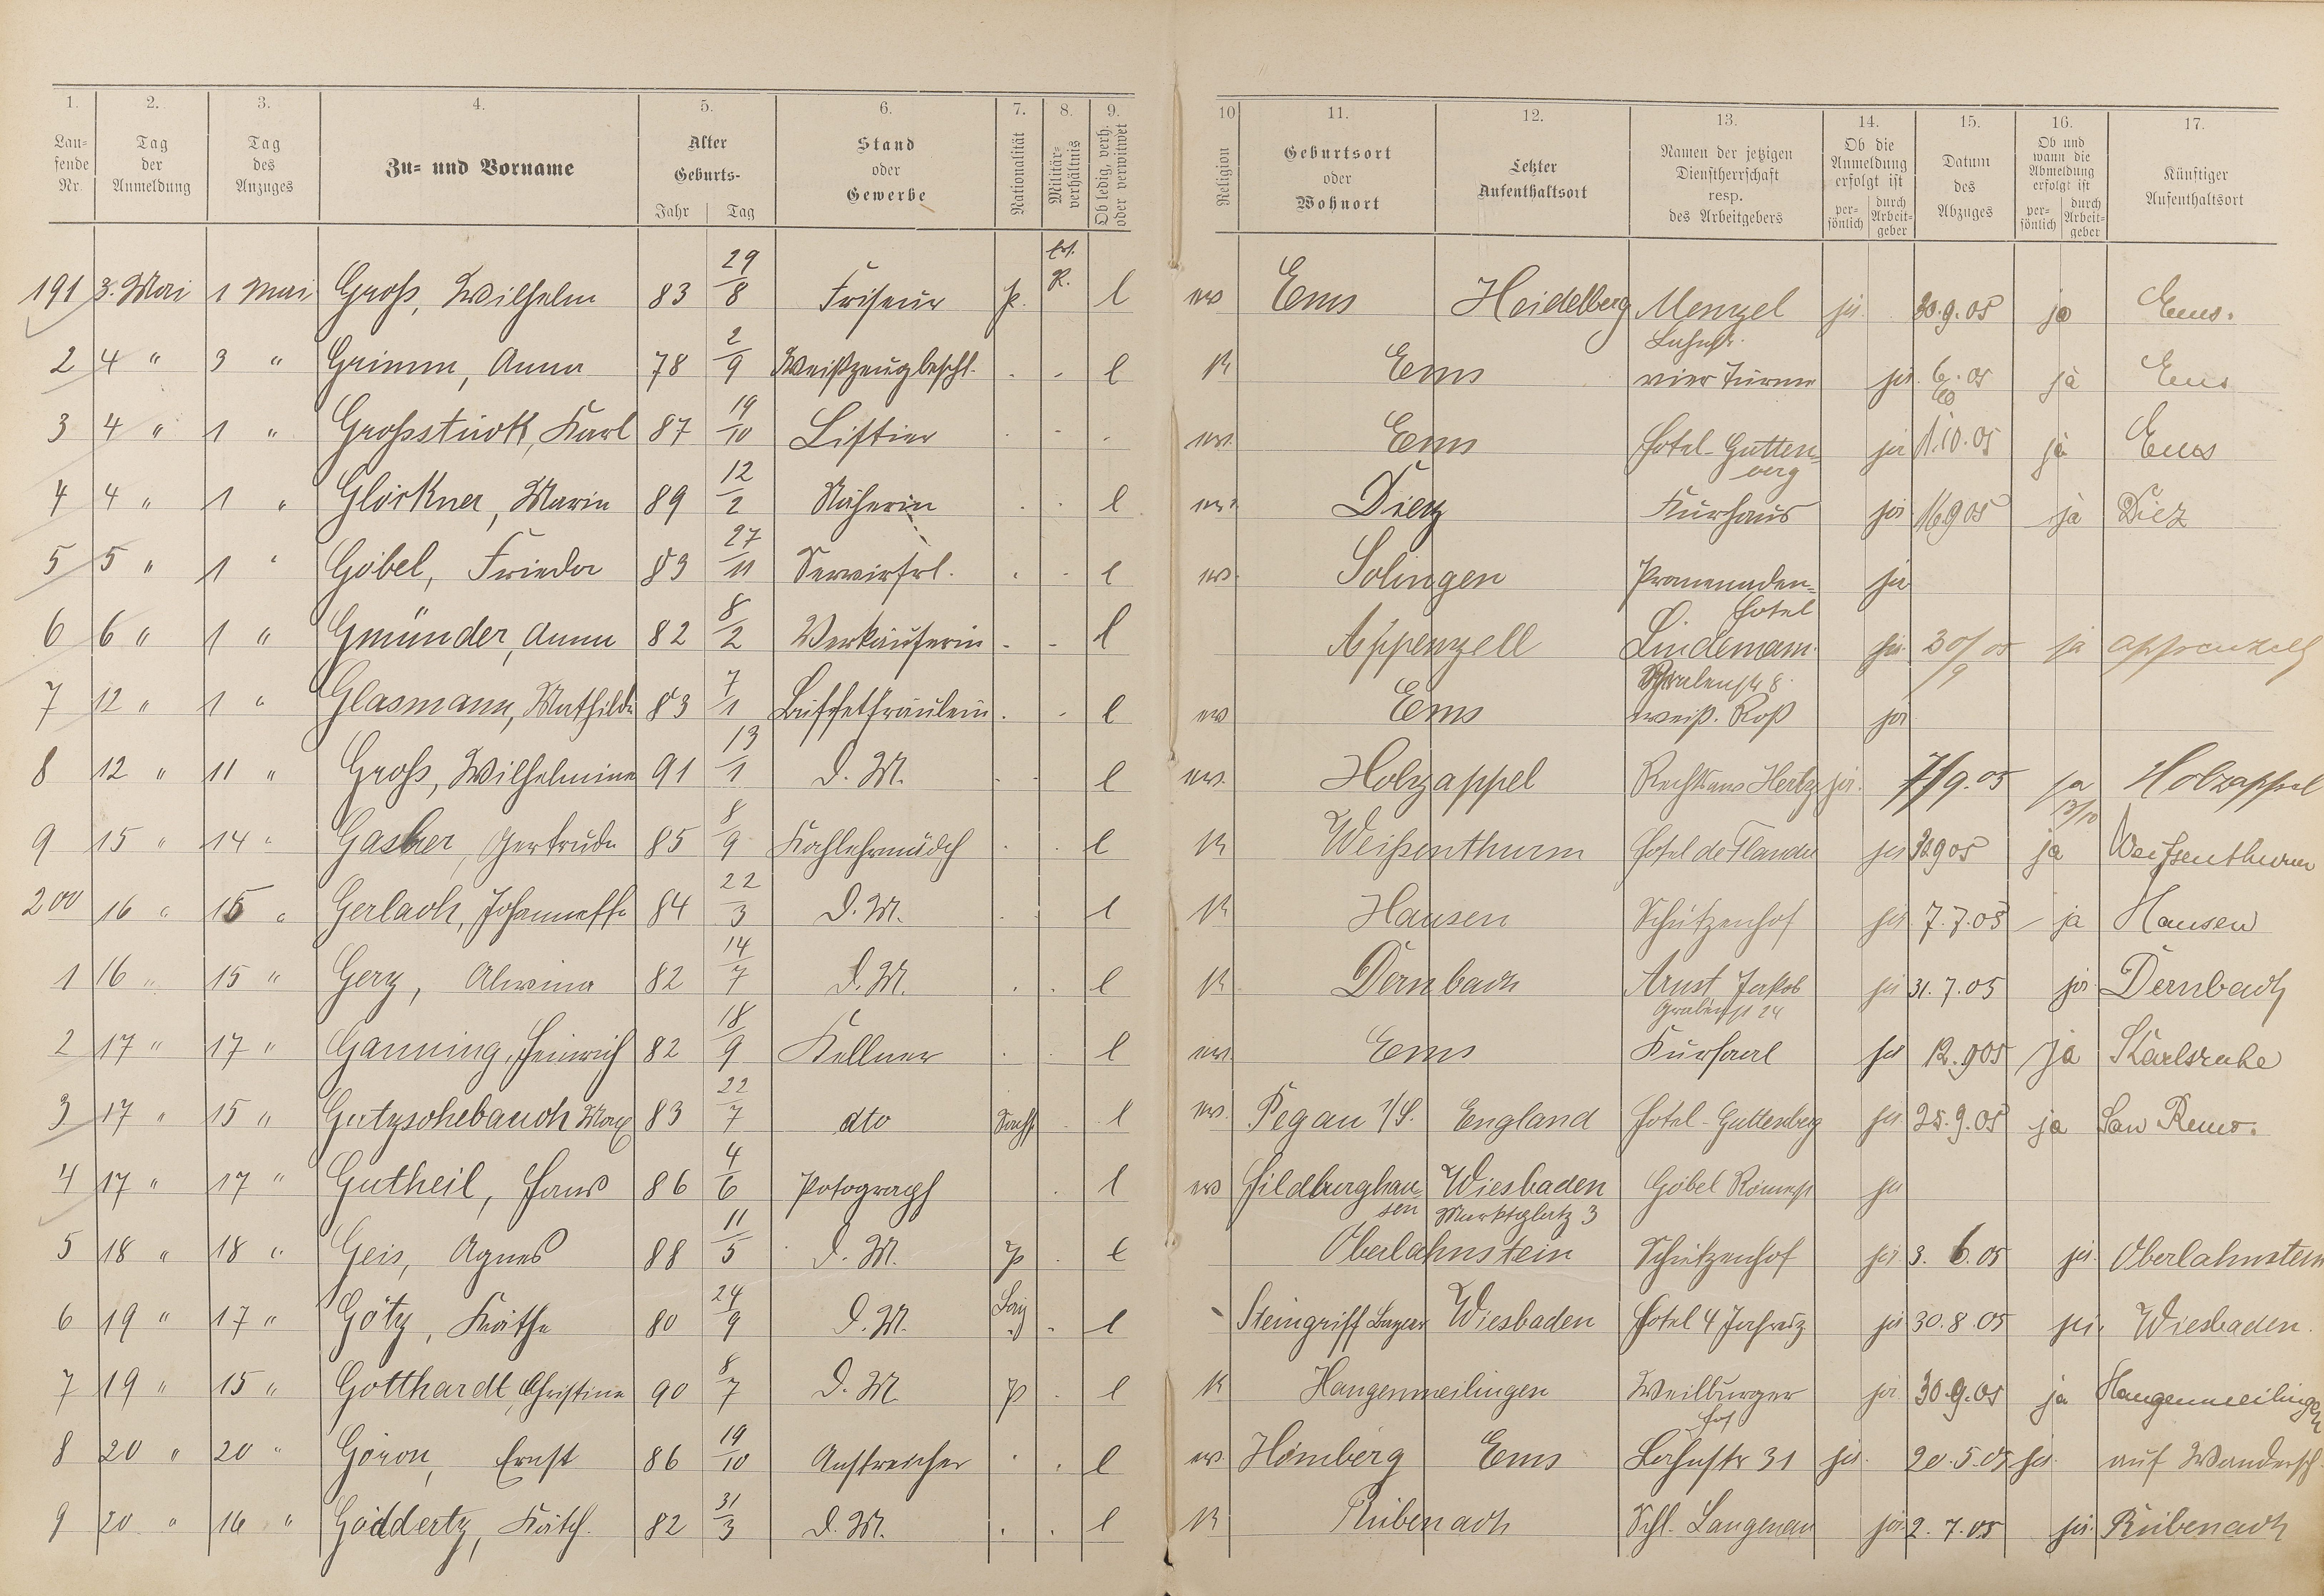 1. 2. 3. 4. 5. 6. 7. 8. 9. 10 11. 12. 13. 14. 15. 16. 17.
Lau-
fende
Nr.
Tag
der
Anmeldung
Tag
des
Anzuges
Zu- und Vorname
Alter
Geburts-
Jahr Tag
Stand
oder
Gewerbe
Nationalität
Militär-
verhältnis
Ob ledig, verh.
oder verwitwet
Religion
Geburtsort
oder
Wohnort
Letzter
Aufenthaltsort
Namen der jetzigen
Dienstherrschaft
resp.
des Arbeitgebers
Ob die
Anmeldung
erfolgt ist
per-
sönlich
durch
Arbeit-
geber
Datum
des
Abzuges
Ob und
wann die
Abmeldung
erfolgt ist
per-
sönlich
durch
Arbeit-
geber
Künftiger
Aufenthaltsort
191 3. Mai 1 Mai Groß, Wilhelm 83 29/8 Friseur p. R. l ev Ems Heidelberg Menzel ja 30.9.05 ja Ems.
Lahnstr.
2 4 " 3 " Grimm, Anna 78 2/9 Weißzeugbeschl. . - l K Ems vier Türme ja 6. 05 ja Ems
3 4 " 1 " Großstück, Karl 87 19/10 Liftier . - . ev. Ems Hotel-Gutten-
berg ja 1.10.05 ja Ems
4 4 " 1 " Glöckner, Maria 89 12/2 Näherin . . l ev. Diez Kurhaus ja 16.9.05 ja Diez
5 5 " 1 " Göbel, Frieda 83 27/11 Servierfrl. . - l ev. Solingen Promenaden-
Hotel ja
6 6 " 1 " Gmünder, Anna 82 8/2 Verkäuferin - - l Appenzell Lindemann ja 30/9 05 ja Appenzell
7 12 " 1 " Glasmann, Mathilde 83 7/1 Büffetfräulein . - l ev Ems weiß. Roß ja
8 12 " 11 " Groß, Wilhelmine 91 13/1 D. M. . . l ev. Holzappel Rechtsanw Hertz ja. 7/9.05 ja Holzappel
13/10
9 15 " 14 " Gasber, Gertrude 85 8/9 Kochlehrmädch . . l K Weißenthurm Hotel de Flandre ja 30905 ja Weißenthurm
200 16 " 15 " Gerlach, Johannette 84 22/3 D. M. . . l K Hausen Schützenhof ja 7.7.05 - ja Hausen
1 16 " 15 " Gerz, Alwina 82 14/7 D. M. . . l K Dernbach Arnst Jakob ja 31.7.05 ja Dernbach
Grabenstr 24
2 17 " 17 " Ganning, Heinrich 82 18/9 Kellner . . l ev. Ems Kursaal ja 12.905 ja Karlsruhe
3 17 " 15 " Gutzschebauch Max 83 22/7 dto Sachs . l ev. Pegau i/S. England Hotel-Guttenberg ja 25.9.05 ja San Remo.
4 17 " 17 " Gutheil, Hans 86 4/6 Potograph . l ev Hildburghau-
sen Wiesbaden
Marktplatz 3 Göbel Römerstr ja
5 18 " 18 " Geis, Agnes 88 11/5 D. M. p . l Oberlahnstein Schützenhof ja 3. 6.05 ja Oberlahnstein
6 19 " 17 " Götz, Käthe 80 24/9 D. M. . l Steingriff Bayern Wiesbaden Hotel 4 Jahresz ja 30.8.05 ja. Wiesbaden.
7 19 " 15 " Gotthardt, Christina 90 8/7 D. M. p . l K Hangenmeilingen Weilburger
Hof ja 30.9.05 ja Hangenmeilingen
8 20 " 20 " Göron, Ernst 86 19/10 Anstreicher . . l ev. Hömberg Ems Lahnstr 31 ja. 20.5.05 ja auf Wandersch
9 20 " 16 " Göddertz, Käth. 82 31/3 D. M. . . l K Rübenach Schl. Langenau ja 2.7.05 ja Rübenach